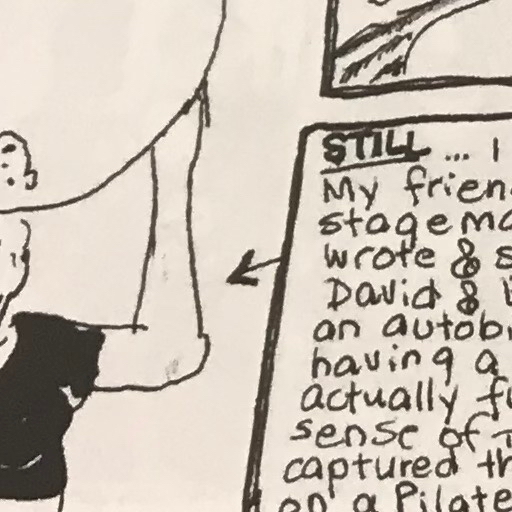 STILL ... I
My frien
stagema
wrote & s
David &
an autobi
having a
actually fu
sense of
captured th
on a Pilate